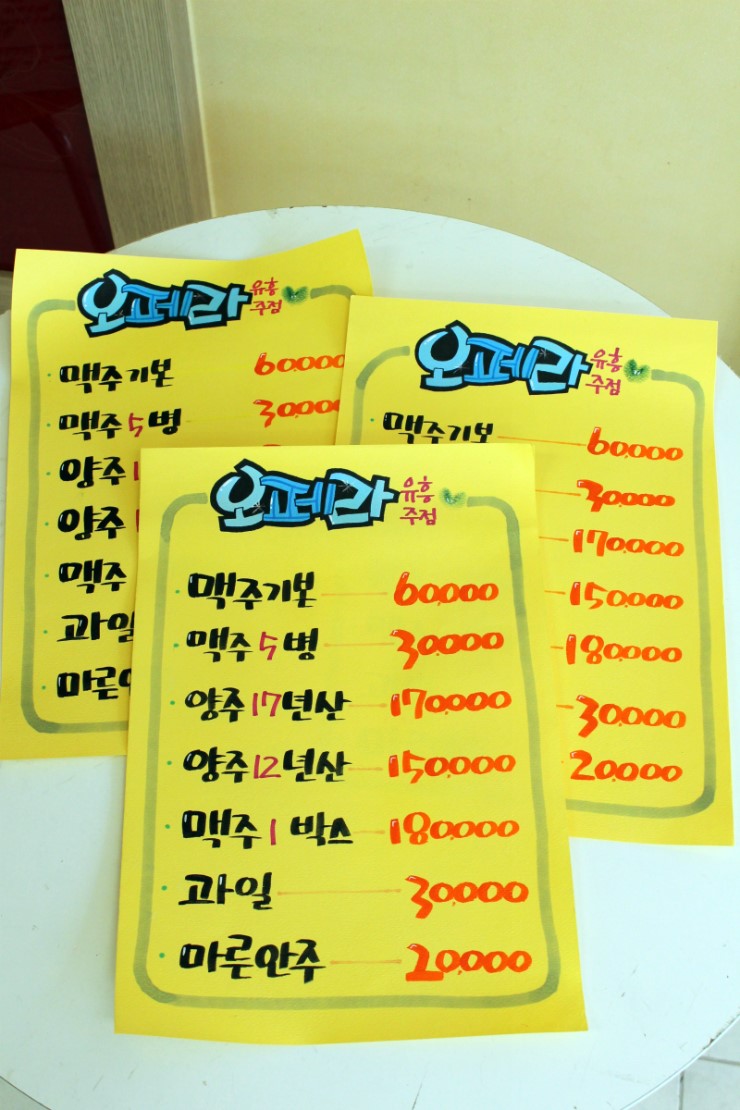 오페라 유흥주점
맥주기본 60,000
맥주 5 병 30,000
양주 1
양주 1
맥주
과일
마른안
오페라 유흥주점
맥주기본 60,000
30,000
170,000
150,000
180,000
30,000
20,000
오페라 유흥주점
맥주기본 60,000
맥주 5 병 30,000
양주 17년산 170,000
양주 12년산 150,000
맥주 1 박스 180,000
과일 30,000
마른안주 20,000